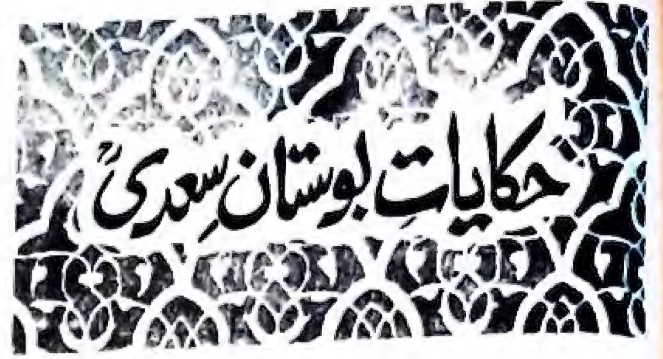 حکایاتِ بوستانِ سعدیؒ